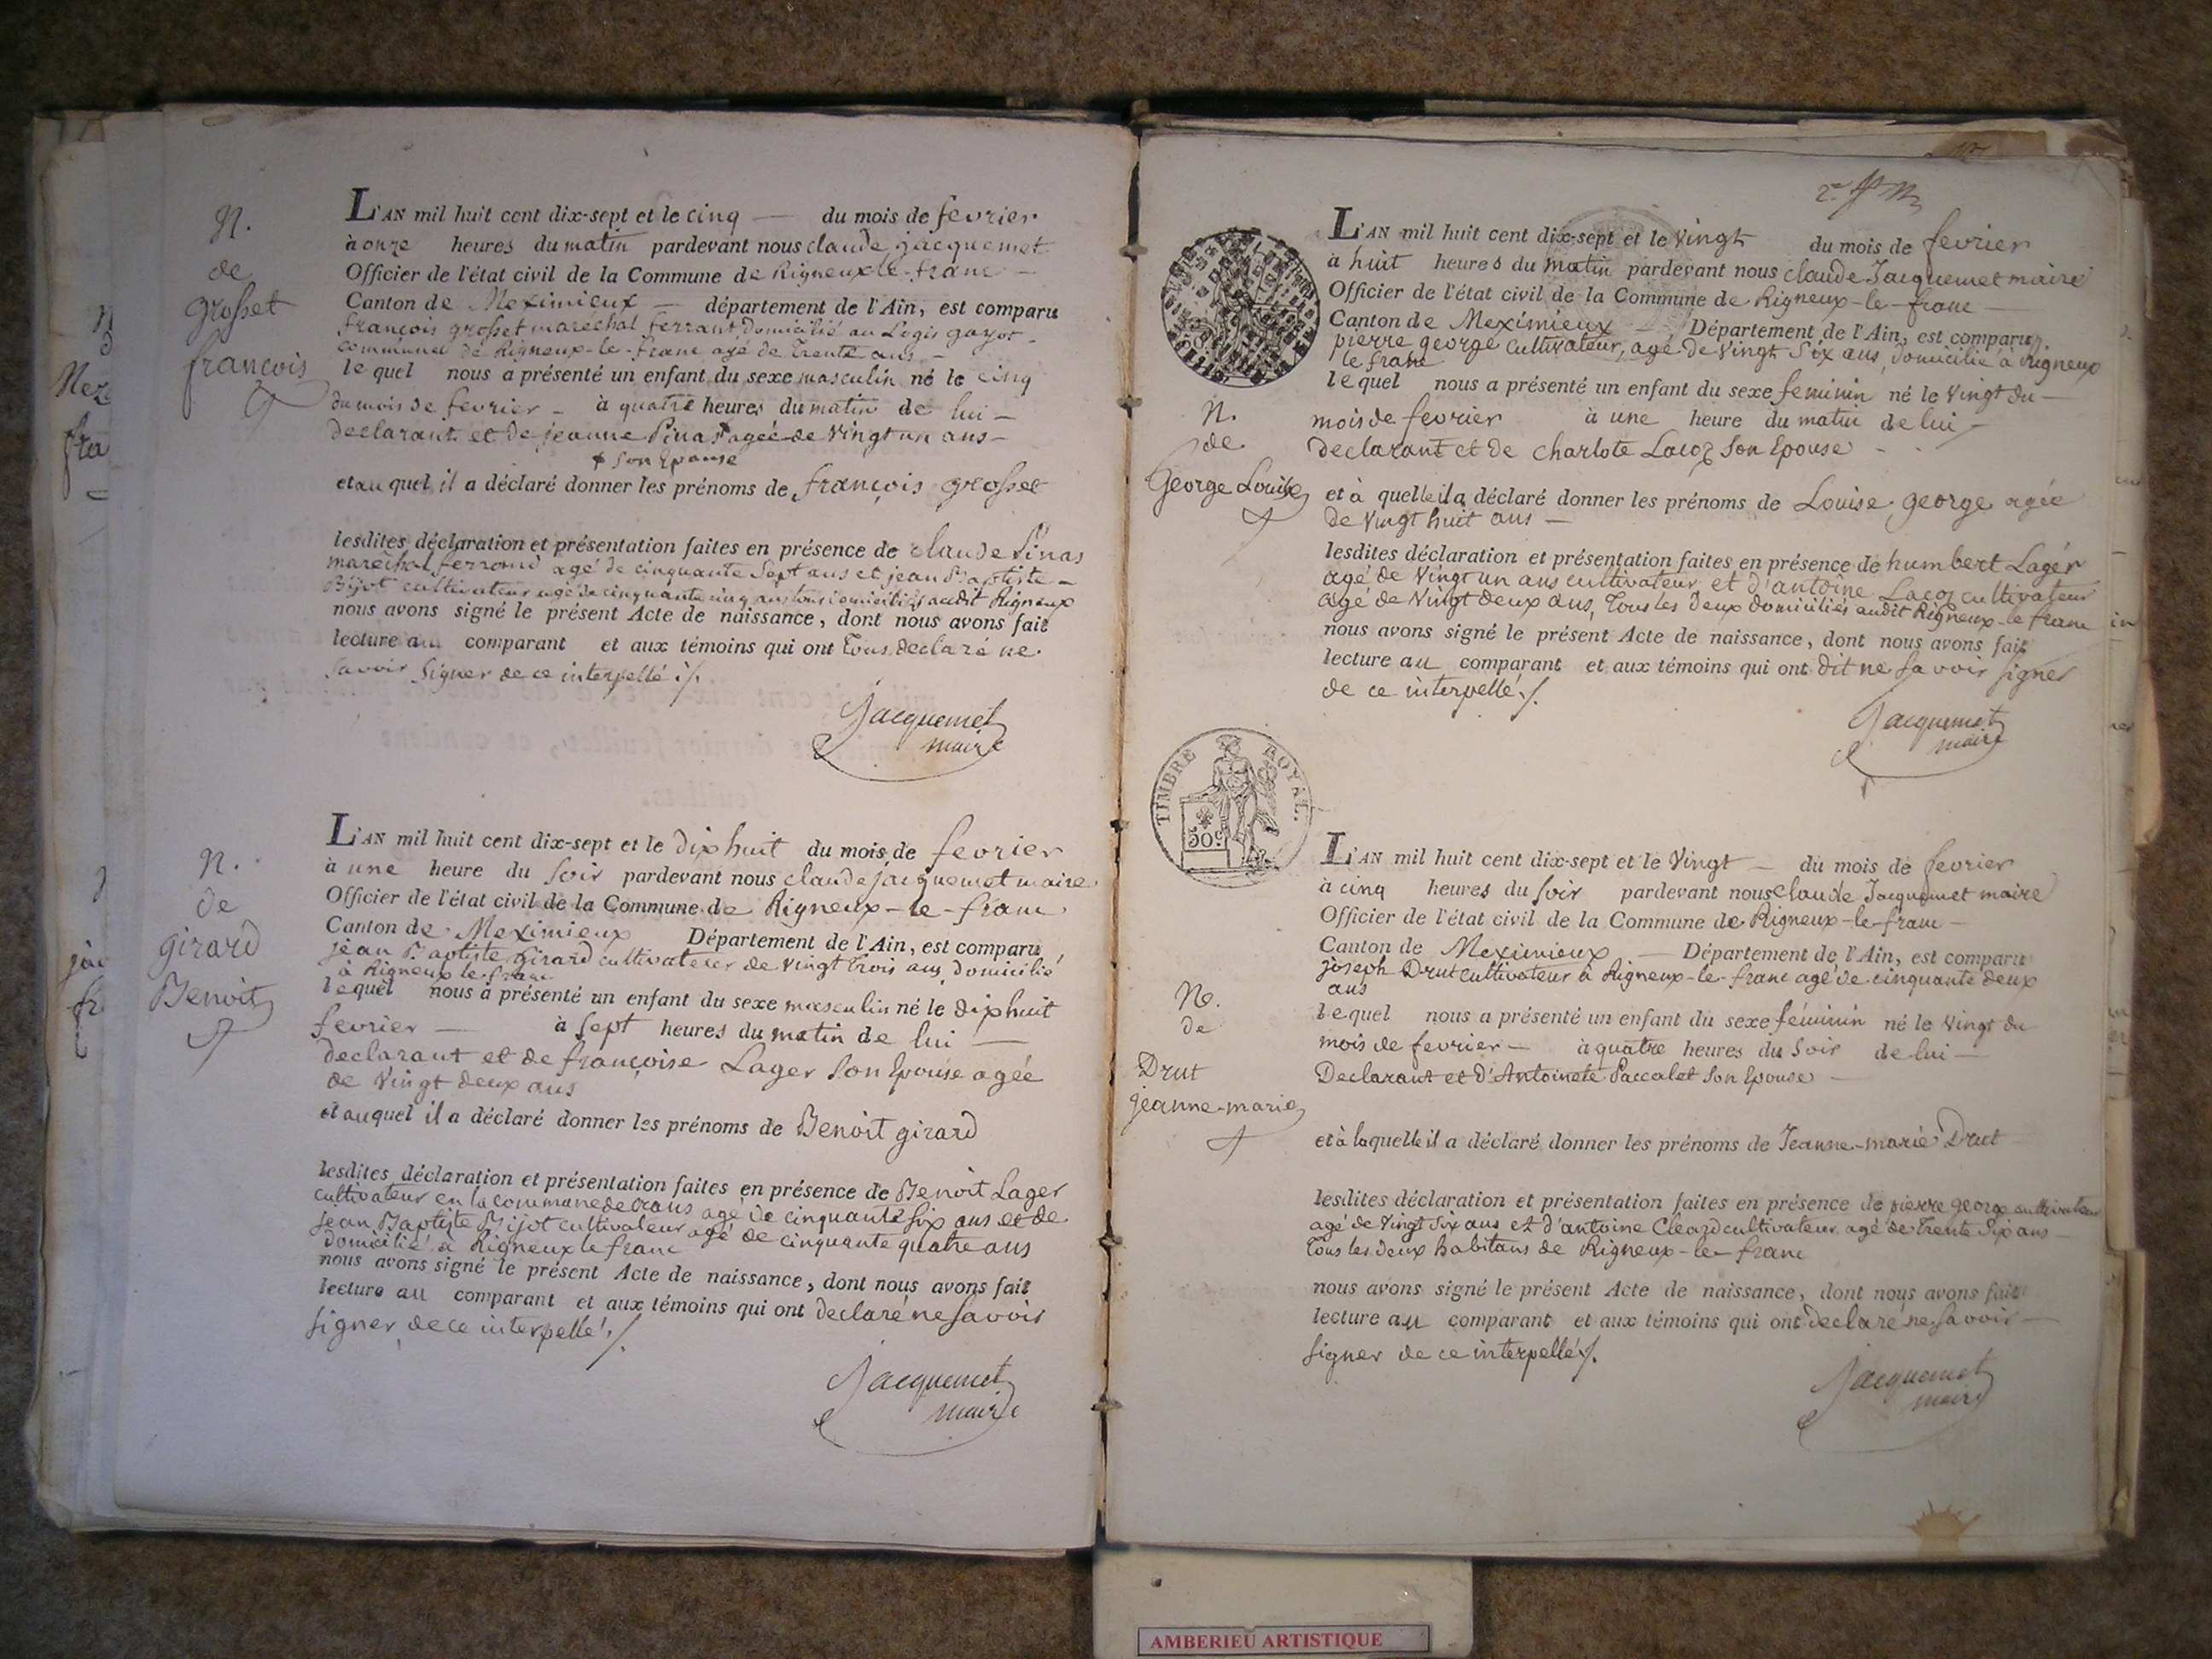 N.
de
Grosset
françois
L'AN mil huit cent dix-sept et le cinq — du mois de fevrier
à onze heures du matin pardevant nous claude jacquemet
Officier de l'état civil de la Commune de Rigneux-le-franc —
Canton de Meximieux — département de l'Ain, est comparu
françois grosset maréchal ferrant domicilié au Logis gayot
commune de Rigneux-le-franc agé de trente ans —
lequel nous a présenté un enfant du sexe masculin né le cinq
du mois de fevrier — à quatre heures du matin de lui —
declarant et de jeanne Pinas agée de vingt un ans —
son Epouse
et auquel il a déclaré donner les prénoms de françois grosset
lesdites déclaration et présentation faites en présence de claude Pinas
maréchal ferrand agé de cinquante sept ans et jean Baptiste —
Bijot cultivateur agé de cinquante cinq ans tous domiciliés audit Rigneux
nous avons signé le présent Acte de naissance, dont nous avons fait
lecture au comparant et aux témoins qui ont tous declaré ne
savoir signer de ce interpellé ./.
Jacquemet
maire
N.
de
girard
Benoit
L'AN mil huit cent dix-sept et le dix huit du mois de fevrier
à une heure du soir pardevant nous claude jacquemet maire
Officier de l'état civil de la Commune de Rigneux-le-franc
Canton de Meximieux Département de l'Ain, est comparu
jean Baptiste girard cultivateur de vingt trois ans domicilié
à Rigneux le franc
lequel nous a présenté un enfant du sexe masculin né le dix huit
fevrier — à sept heures du matin de lui —
declarant et de françoise Lager son Epouse agée
de vingt deux ans
et auquel il a déclaré donner les prénoms de Benoit girard
lesdites déclaration et présentation faites en présence de Benoit Lager
cultivateur en la commune de crans agé de cinquante six ans et de
jean Baptiste Bijot cultivateur agé de cinquante quatre ans
domicilié à Rigneux le franc
nous avons signé le présent Acte de naissance, dont nous avons fait
lecture au comparant et aux témoins qui ont declaré ne savoir
signer de ce interpellé ./.
Jacquemet
maire
N.
de
George Louise
L'AN mil huit cent dix-sept et le vingt du mois de fevrier
à huit heures du matin pardevant nous claude Jacquemet maire
Officier de l'état civil de la Commune de Rigneux-le-franc
Canton de Meximieux — Département de l'Ain, est comparu
pierre george cultivateur, agé de vingt six ans, domicilié à Rigneux
le franc
lequel nous a présenté un enfant du sexe feminin né le vingt du —
mois de fevrier à une heure du matin de lui —
declarant et de charlote Lacoz son Epouse
et à quelle il a déclaré donner les prénoms de Louise george agée
de vingt huit ans —
lesdites déclaration et présentation faites en présence de humbert Lager
agé de vingt un ans cultivateur et d'antoine Lacoz cultivateur
agé de vingt deux ans, tous les deux domiciliés audit Rigneux-le franc
nous avons signé le présent Acte de naissance, dont nous avons fait
lecture au comparant et aux témoins qui ont dit ne savoir signer
de ce interpellé ./.
Jacquemet
maire
TIMBRE ROYAL.
50c
N.
de
Drut
jeanne-marie
L'AN mil huit cent dix-sept et le vingt — du mois de fevrier
à cinq heures du soir pardevant nous claude Jacquemet maire
Officier de l'état civil de la Commune de Rigneux-le-franc —
Canton de Meximieux — Département de l'Ain, est comparu
joseph Drut cultivateur à Rigneux-le-franc agé de cinquante deux
ans
lequel nous a présenté un enfant du sexe féminin né le vingt du
mois de fevrier — à quatre heures du soir de lui —
Declarant et d'Antoinete Paccalet son Epouse —
et à laquelle il a déclaré donner les prénoms de Jeanne-marie Drut
lesdites déclaration et présentation faites en présence de pierre george cultivateur
agé de vingt six ans et d'antoine Cleard cultivateur agé de trente six ans
tous les deux habitans de Rigneux-le-franc
nous avons signé le présent Acte de naissance, dont nous avons fait
lecture au comparant et aux témoins qui ont declaré ne savoir —
signer de ce interpellé ./.
Jacquemet
maire
AMBERIEU ARTISTIQUE